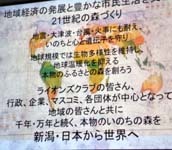 地域経済の発展と豊かな市民生活を支
21世紀の森づくり
地震・大津波・台風・火事にも耐え
いのちと心と遺伝子を守り
地球規模では生物多様性を維持し、
地球温暖化を抑える
本物のふるさとの森を創ろう
ライオンズクラブの皆さん、
行政、企業、マスコミ、各団体が中心となって
地域の皆さんと共に
千年・万年と続く、本物のいのちの森を
新潟・日本から世界へ